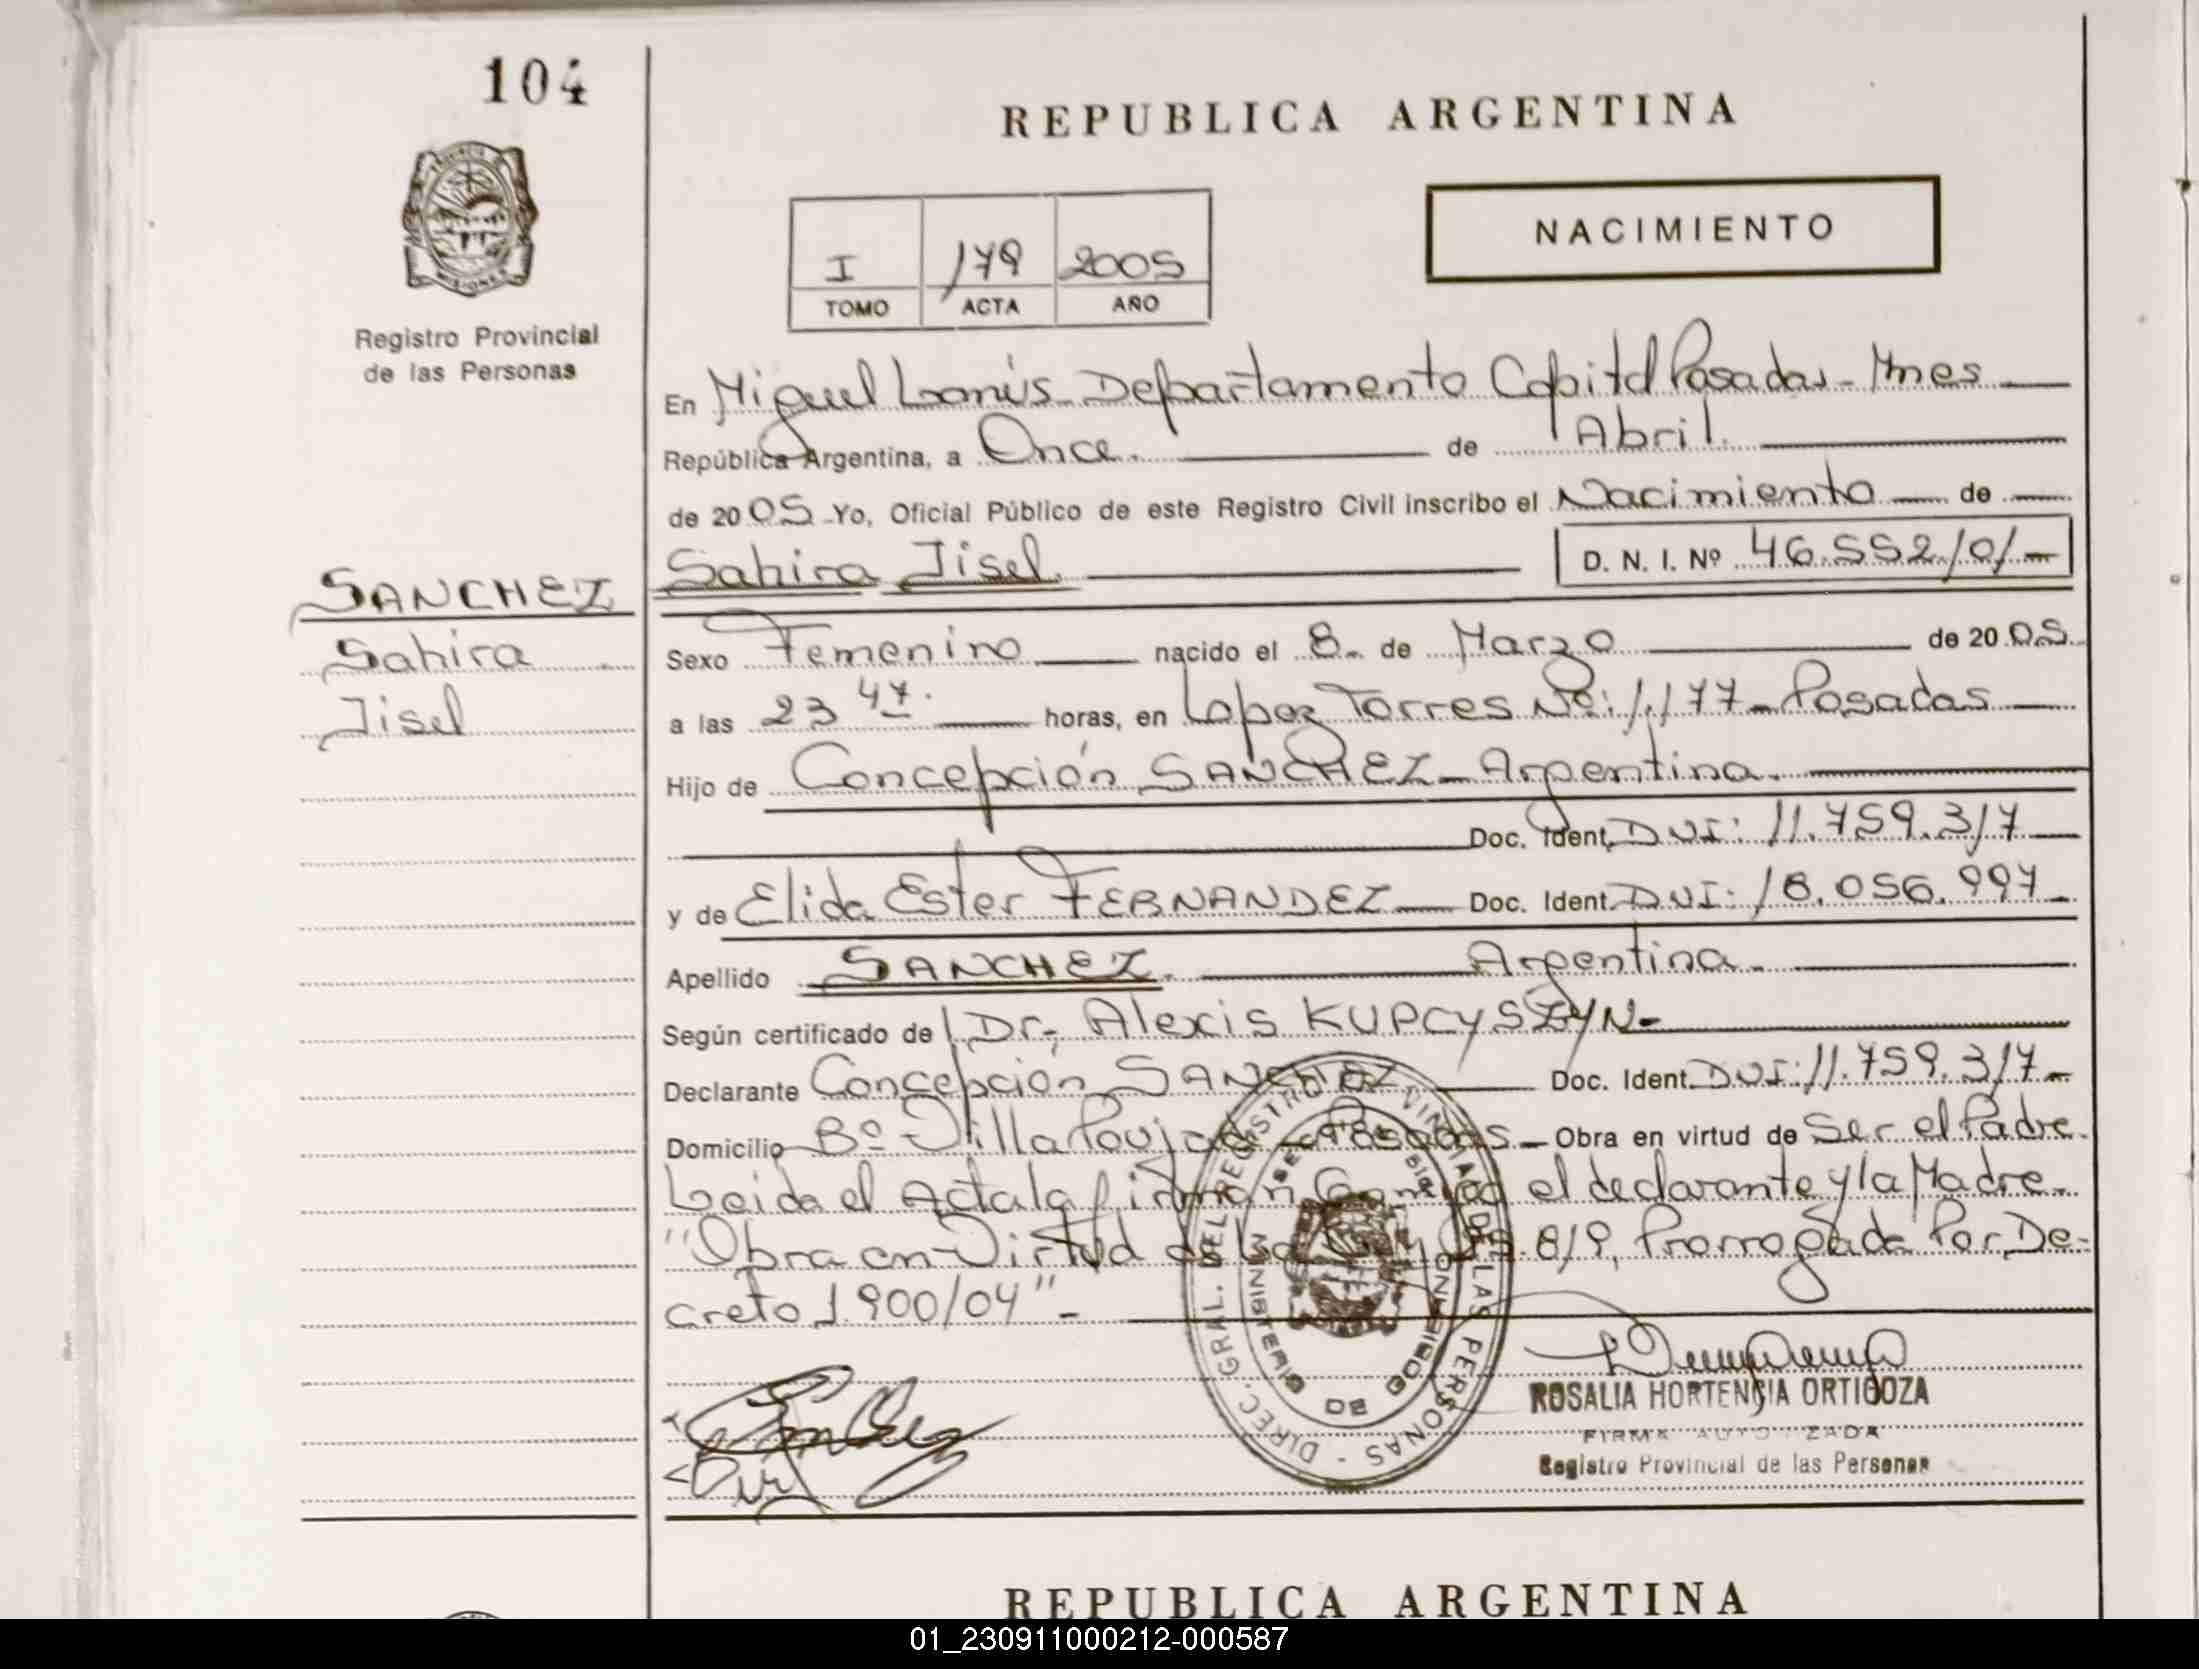 104
REPUBLICA ARGENTINA
PROVINCIA DE
MISIONES
Registro Provincial
de las Personas
NACIMIENTO
I 179 2005
TOMO ACTA AÑO
En Miguel Lanús - Departamento Capital Posadas - Mnes
República Argentina, a Once. de Abril.
de 2005 Yo, Oficial Público de este Registro Civil inscribo el Nacimiento de
Sahira Jisel. D. N. I. Nº 46.552.101.-
SANCHEZ
Sahira
Jisel
Sexo Femenino nacido el 8. de Marzo de 2005.
a las 23 47. horas, en Lopez Torres Nº: 1.177 - Posadas
Hijo de Concepción SANCHEZ - Argentina.
Doc. Ident. DNI: 11.759.317
y de Elida Ester FERNANDEZ Doc. Ident. DNI: 18.056.997-
Apellido SANCHEZ. Argentina.
Según certificado de Dr. Alexis KUPCYSZYN-
Declarante Concepción SANCHEZ Doc. Ident. DNI: 11.759.317-
Domicilio Bº Villa Poujade - Posadas - Obra en virtud de Ser el Padre.
Leida el Acta la firman Conmigo el declarante y la Madre.
"Obra en Virtud de la Ley 25.819, Prorrogada Por De-
creto 1.900/04"-
DIREC. GRAL. DEL REGISTRO PROVINCIAL DE LAS PERSONAS -
MINISTERIO DE GOBIERNO
MISIONES
ROSALIA HORTENCIA ORTIGOZA
FIRMA AUTORIZADA
Registro Provincial de las Personas
REPUBLICA ARGENTINA
01_230911000212-000587